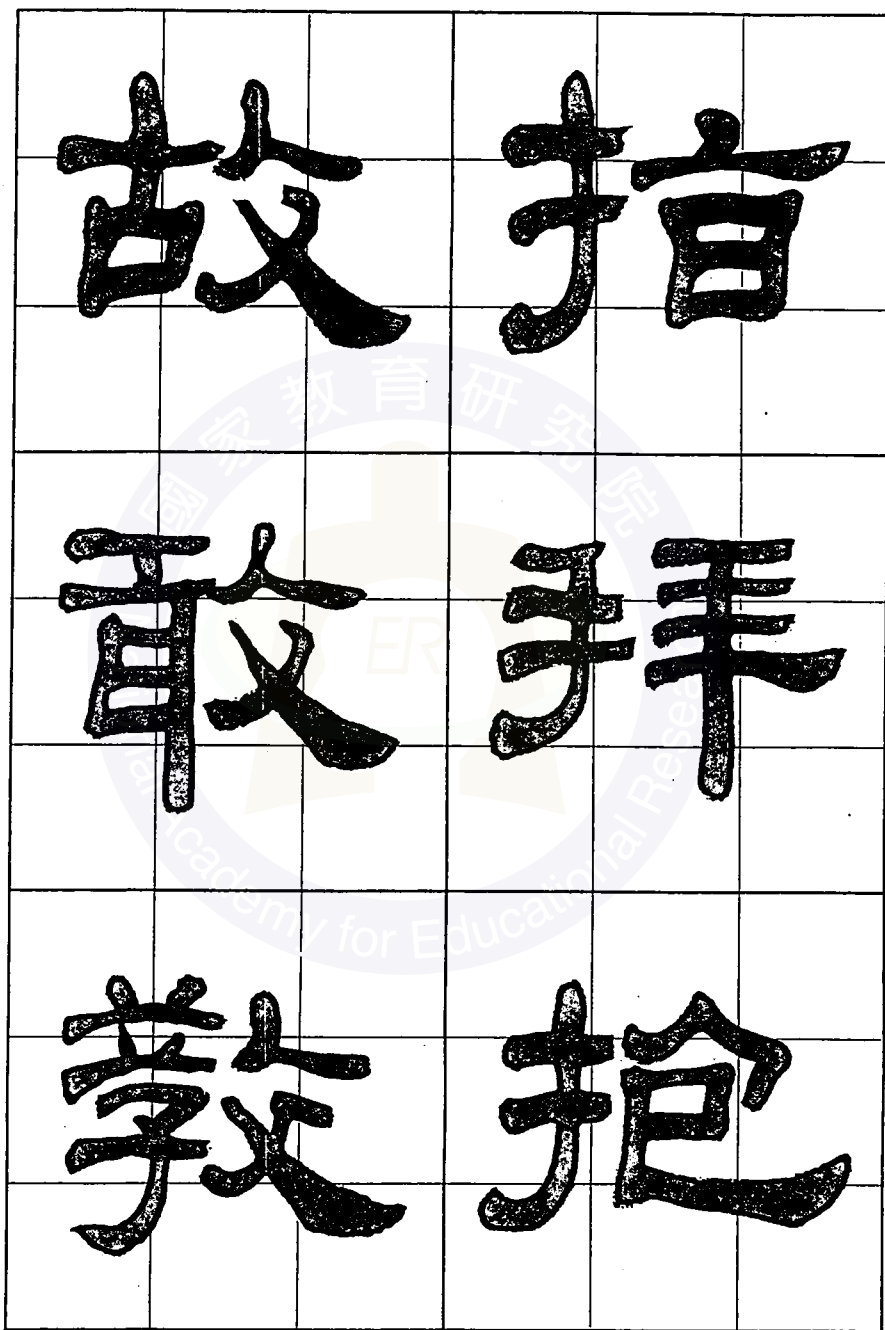 指拜抱
故敢教
國家教育研究院
National Academy for Educational Research